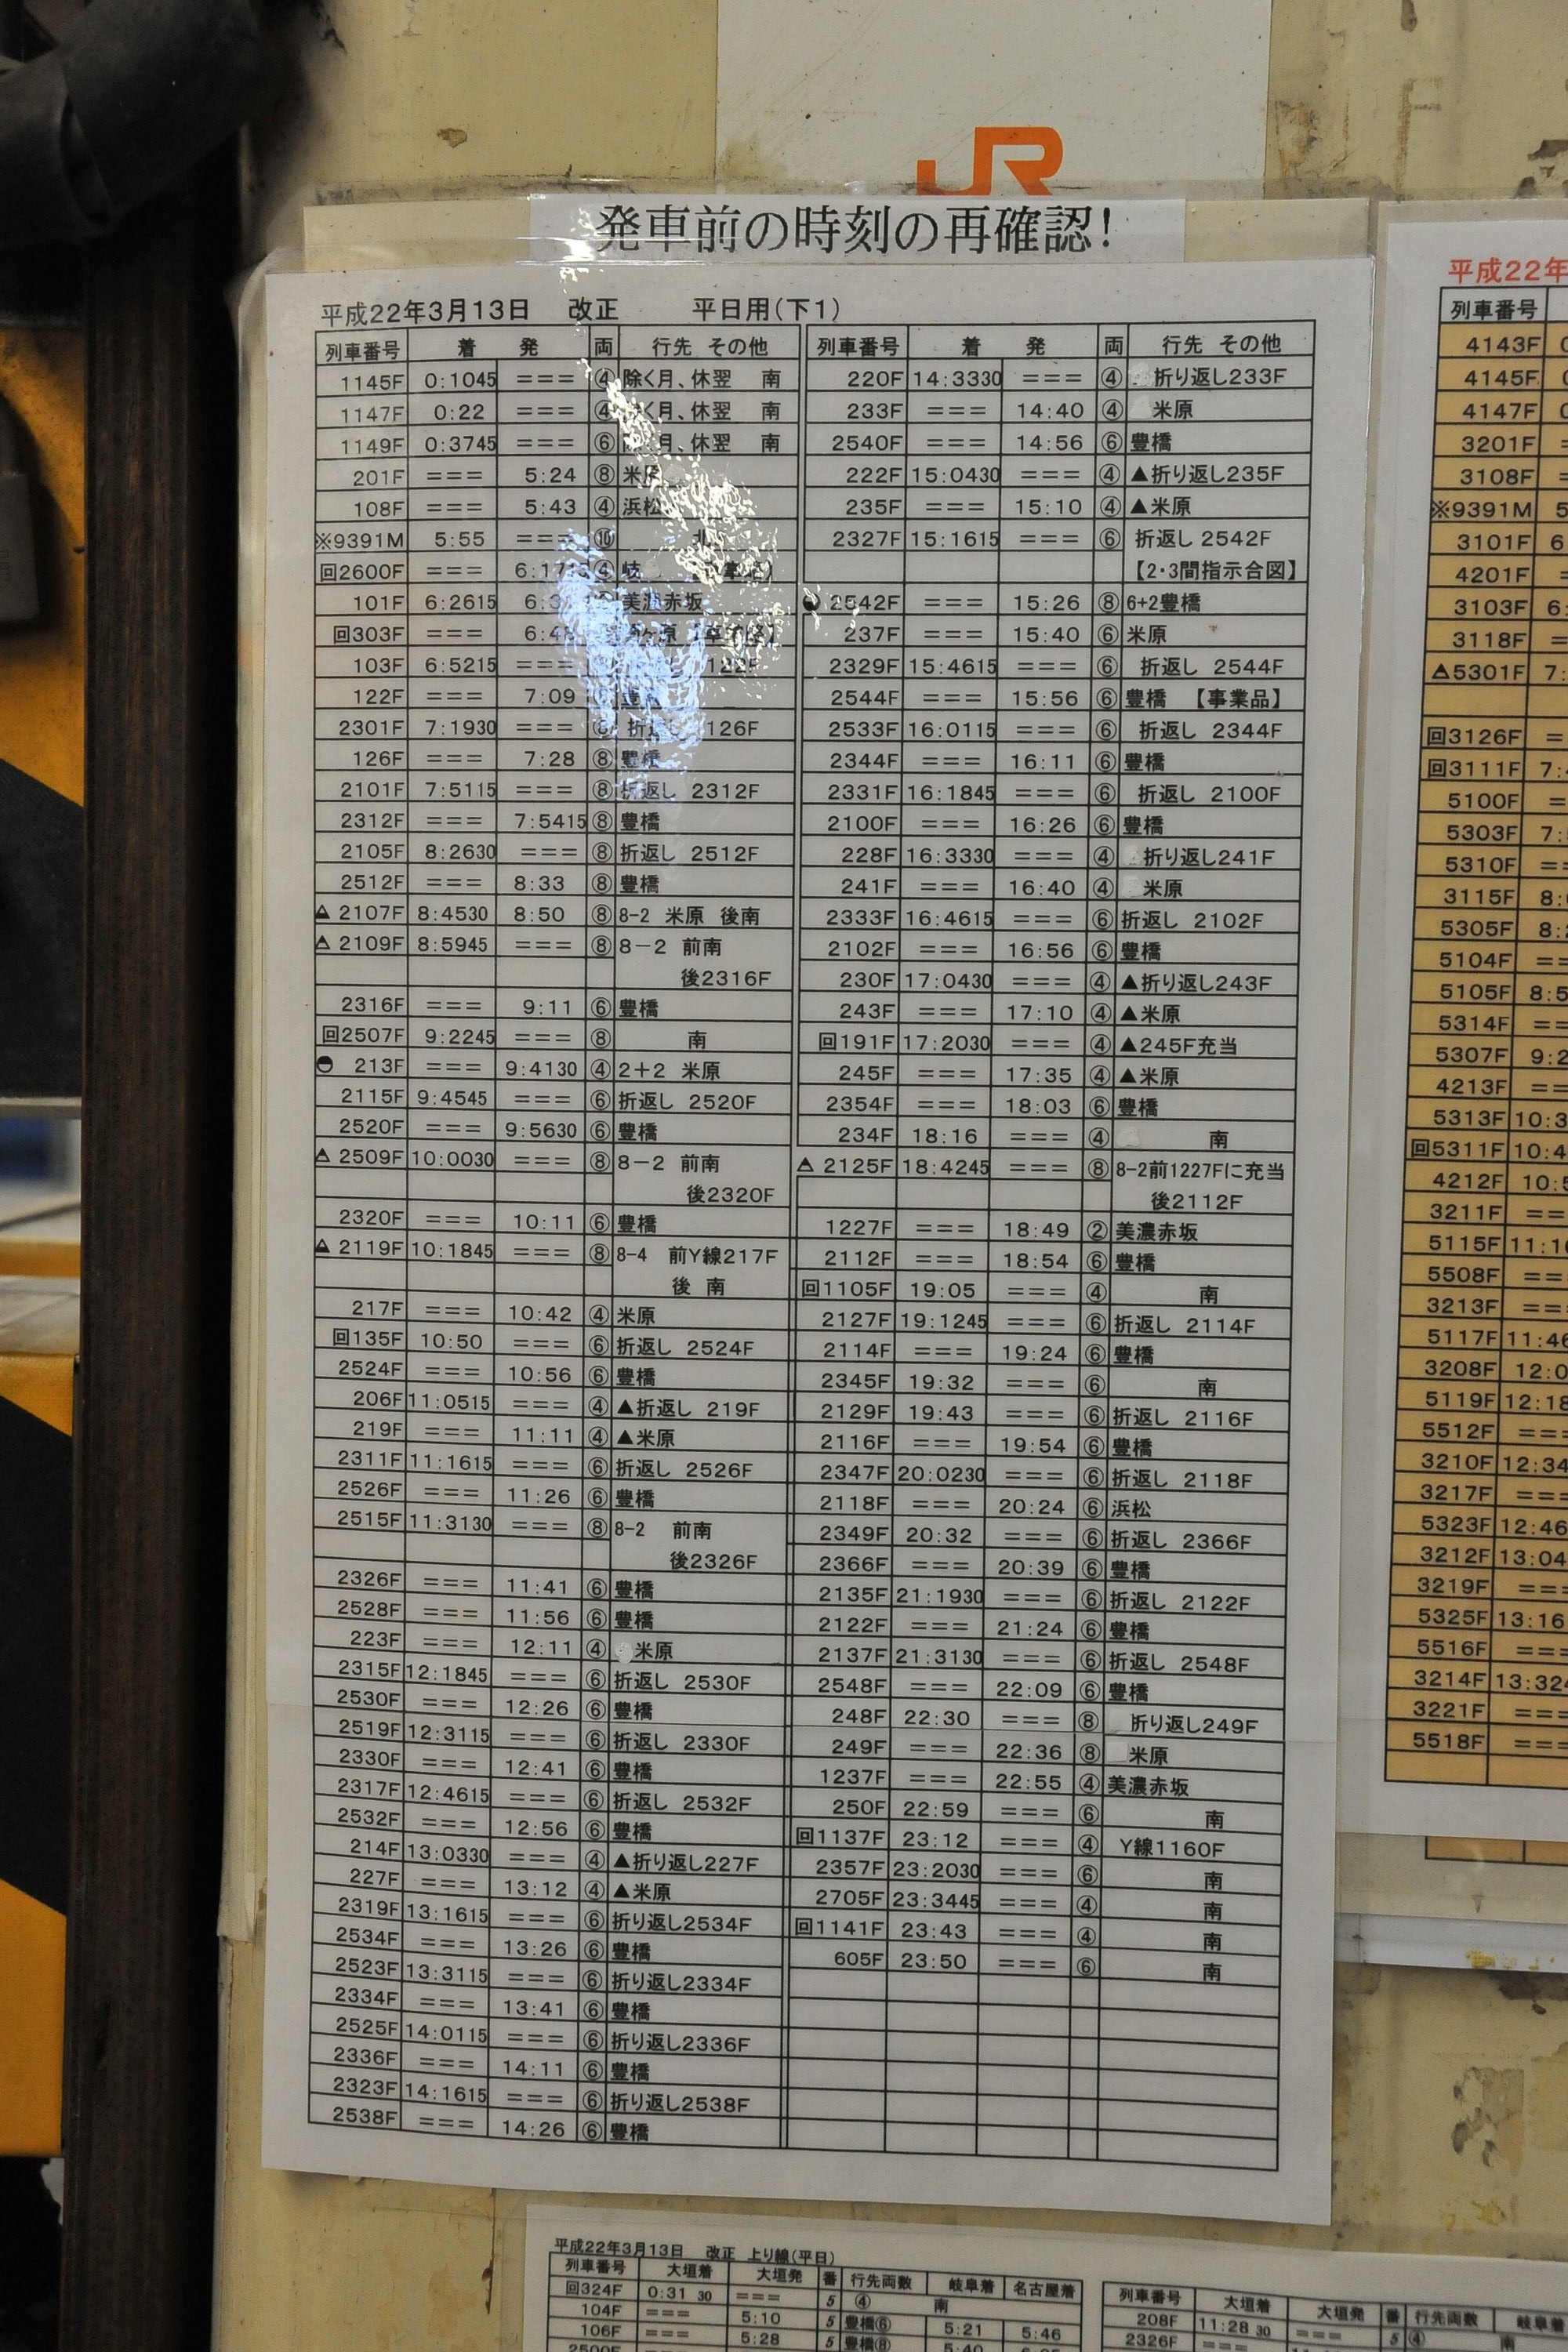 JR
発車前の時刻の再確認!
平成22年3月13日 改正 平日用(下1)
列車番号 着 発 両 行先 その他
1145F 0:1045 === ④ 除く月、休翌 南
1147F 0:22 === ④ く月、休翌 南
1149F 0:3745 === ⑥ 月、休翌 南
201F === 5:24 ⑧ 米原
108F === 5:43 ④ 浜松
※9391M 5:55 === ⑩ 北
回2600F === 6:17 ④
101F 6:2615 美濃赤坂
回303F ===
103F 6:5215
122F === 7:09
2301F 7:1930 === 126F
126F === 7:28 ⑧ 豊橋
2101F 7:5115 === ⑧ 折返し 2312F
2312F === 7:5415 ⑧ 豊橋
2105F 8:2630 === ⑧ 折返し 2512F
2512F === 8:33 ⑧ 豊橋
2107F 8:4530 8:50 ⑧ 8-2 米原 後南
2109F 8:5945 === ⑧ 8-2 前南
後2316F
2316F === 9:11 ⑥ 豊橋
回2507F 9:2245 === ⑧ 南
213F === 9:4130 ④ 2+2 米原
2115F 9:4545 === ⑥ 折返し 2520F
2520F === 9:5630 ⑥ 豊橋
2509F 10:0030 === ⑧ 8-2 前南
後2320F
2320F === 10:11 ⑥ 豊橋
2119F 10:1845 === ⑧ 8-4 前Y線217F
後 南
217F === 10:42 ④ 米原
回135F 10:50 === ⑥ 折返し 2524F
2524F === 10:56 ⑥ 豊橋
206F 11:0515 === ④ ▲折返し 219F
219F === 11:11 ④ ▲米原
2311F 11:1615 === ⑥ 折返し 2526F
2526F === 11:26 ⑥ 豊橋
2515F 11:3130 === ⑧ 8-2 前南
後2326F
2326F === 11:41 ⑥ 豊橋
2528F === 11:56 ⑥ 豊橋
223F === 12:11 ④ 米原
2315F 12:1845 === ⑥ 折返し 2530F
2530F === 12:26 ⑥ 豊橋
2519F 12:3115 === ⑥ 折返し 2330F
2330F === 12:41 ⑥ 豊橋
2317F 12:4615 === ⑥ 折返し 2532F
2532F === 12:56 ⑥ 豊橋
214F 13:0330 === ④ ▲折り返し227F
227F === 13:12 ④ ▲米原
2319F 13:1615 === ⑥ 折り返し2534F
2534F === 13:26 ⑥ 豊橋
2523F 13:3115 === ⑥ 折り返し2334F
2334F === 13:41 ⑥ 豊橋
2525F 14:0115 === ⑥ 折り返し2336F
2336F === 14:11 ⑥ 豊橋
2323F 14:1615 === ⑥ 折り返し2538F
2538F === 14:26 ⑥ 豊橋
列車番号 着 発 両 行先 その他
220F 14:3330 === ④ 折り返し233F
233F === 14:40 ④ 米原
2540F === 14:56 ⑥ 豊橋
222F 15:0430 === ④ ▲折り返し235F
235F === 15:10 ④ ▲米原
2327F 15:1615 === ⑥ 折返し 2542F
【2・3間指示合図】
2542F === 15:26 ⑧ 6+2豊橋
237F === 15:40 ⑥ 米原
2329F 15:4615 === ⑥ 折返し 2544F
2544F === 15:56 ⑥ 豊橋 【事業品】
2533F 16:0115 === ⑥ 折返し 2344F
2344F === 16:11 ⑥ 豊橋
2331F 16:1845 === ⑥ 折返し 2100F
2100F === 16:26 ⑥ 豊橋
228F 16:3330 === ④ 折り返し241F
241F === 16:40 ④ 米原
2333F 16:4615 === ⑥ 折返し 2102F
2102F === 16:56 ⑥ 豊橋
230F 17:0430 === ④ ▲折り返し243F
243F === 17:10 ④ ▲米原
回191F 17:2030 === ④ ▲245F充当
245F === 17:35 ④ ▲米原
2354F === 18:03 ⑥ 豊橋
234F 18:16 === ④ 南
2125F 18:4245 === ⑧ 8-2前1227Fに充当
後2112F
1227F === 18:49 ② 美濃赤坂
2112F === 18:54 ⑥ 豊橋
回1105F 19:05 === ④ 南
2127F 19:1245 === ⑥ 折返し 2114F
2114F === 19:24 ⑥ 豊橋
2345F 19:32 === ⑥ 南
2129F 19:43 === ⑥ 折返し 2116F
2116F === 19:54 ⑥ 豊橋
2347F 20:0230 === ⑥ 折返し 2118F
2118F === 20:24 ⑥ 浜松
2349F 20:32 === ⑥ 折返し 2366F
2366F === 20:39 ⑥ 豊橋
2135F 21:1930 === ⑥ 折返し 2122F
2122F === 21:24 ⑥ 豊橋
2137F 21:3130 === ⑥ 折返し 2548F
2548F === 22:09 ⑥ 豊橋
248F 22:30 === ⑧ 折り返し249F
249F === 22:36 ⑧ 米原
1237F === 22:55 ④ 美濃赤坂
250F 22:59 === ⑥ 南
回1137F 23:12 === ④ Y線1160F
2357F 23:2030 === ⑥ 南
2705F 23:3445 === ④ 南
回1141F 23:43 === ④ 南
605F 23:50 === ⑥ 南
平成22年
列車番号
4143F
4145F
4147F
3201F
3108F
※9391M 5
3101F 6
4201F =
3103F 6:
3118F =
5301F 7:
回3126F =
回3111F 7:
5100F =
5303F 7:
5310F ==
3115F 8:
5305F 8:
5104F ==
5105F 8:5
5314F ==
5307F 9:2
4213F ==
5313F 10:3
回5311F 10:4
4212F 10:5
3211F ==
5115F 11:1
5508F ===
3213F ===
5117F 11:46
3208F 12:0
5119F 12:18
5512F ===
3210F 12:34
3217F ===
5323F 12:46
3212F 13:04
3219F ===
5325F 13:16
5516F ===
3214F 13:324
3221F ===
5518F ===
平成22年3月13日 改正 上り線(平日)
列車番号 大垣着 大垣発 番 行先両数 岐阜着 名古屋着
回324F 0:31 30 === 5 ④ 南
104F === 5:10 5 豊橋⑥ 5:21 5:46
106F === 5:28 5 豊橋⑧ 5:40
2500F
列車番号 大垣着 大垣発 番 行先両数
208F 11:28 30 === 5 ④ 南
2326F ===